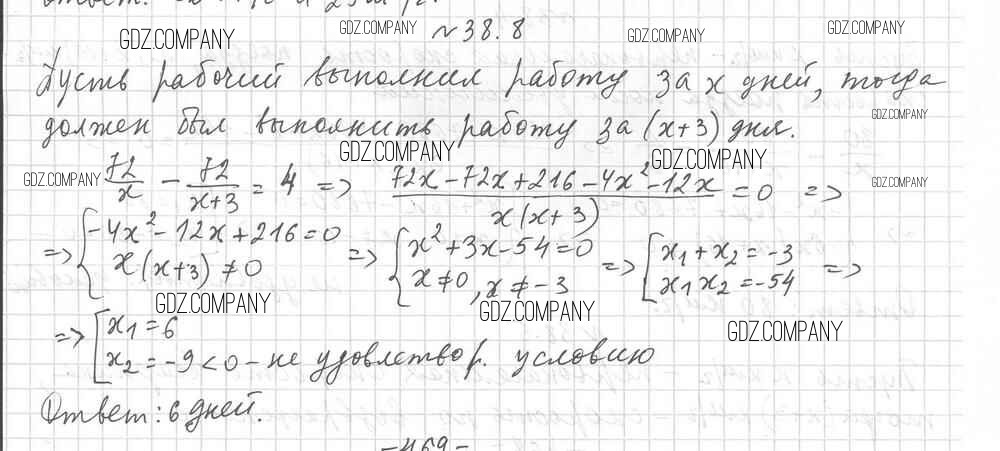 Ответ:
GDZ.COMPANY GDZ.COMPANY №38.8 GDZ.COMPANY GDZ.COMPANY
Пусть рабочий выполнил работу за x дней, тогда
GDZ.COMPANY
должен был выполнить работу за (x+3) дня.
GDZ.COMPANY GDZ.COMPANY
GDZ.COMPANY 72/x - 72/(x+3) = 4 => (72x-72x+216-4x²-12x)/(x(x+3)) = 0 => GDZ.COMPANY
=> { -4x²-12x+216=0 ; x(x+3)≠0 => { x²+3x-54=0 ; x≠0, x≠-3 => [ x₁+x₂=-3 ; x₁x₂=-54 =>
GDZ.COMPANY GDZ.COMPANY GDZ.COMPANY
=> [ x₁=6
x₂=-9<0 - не удовлетвор. условию
Ответ: 6 дней.
-469-